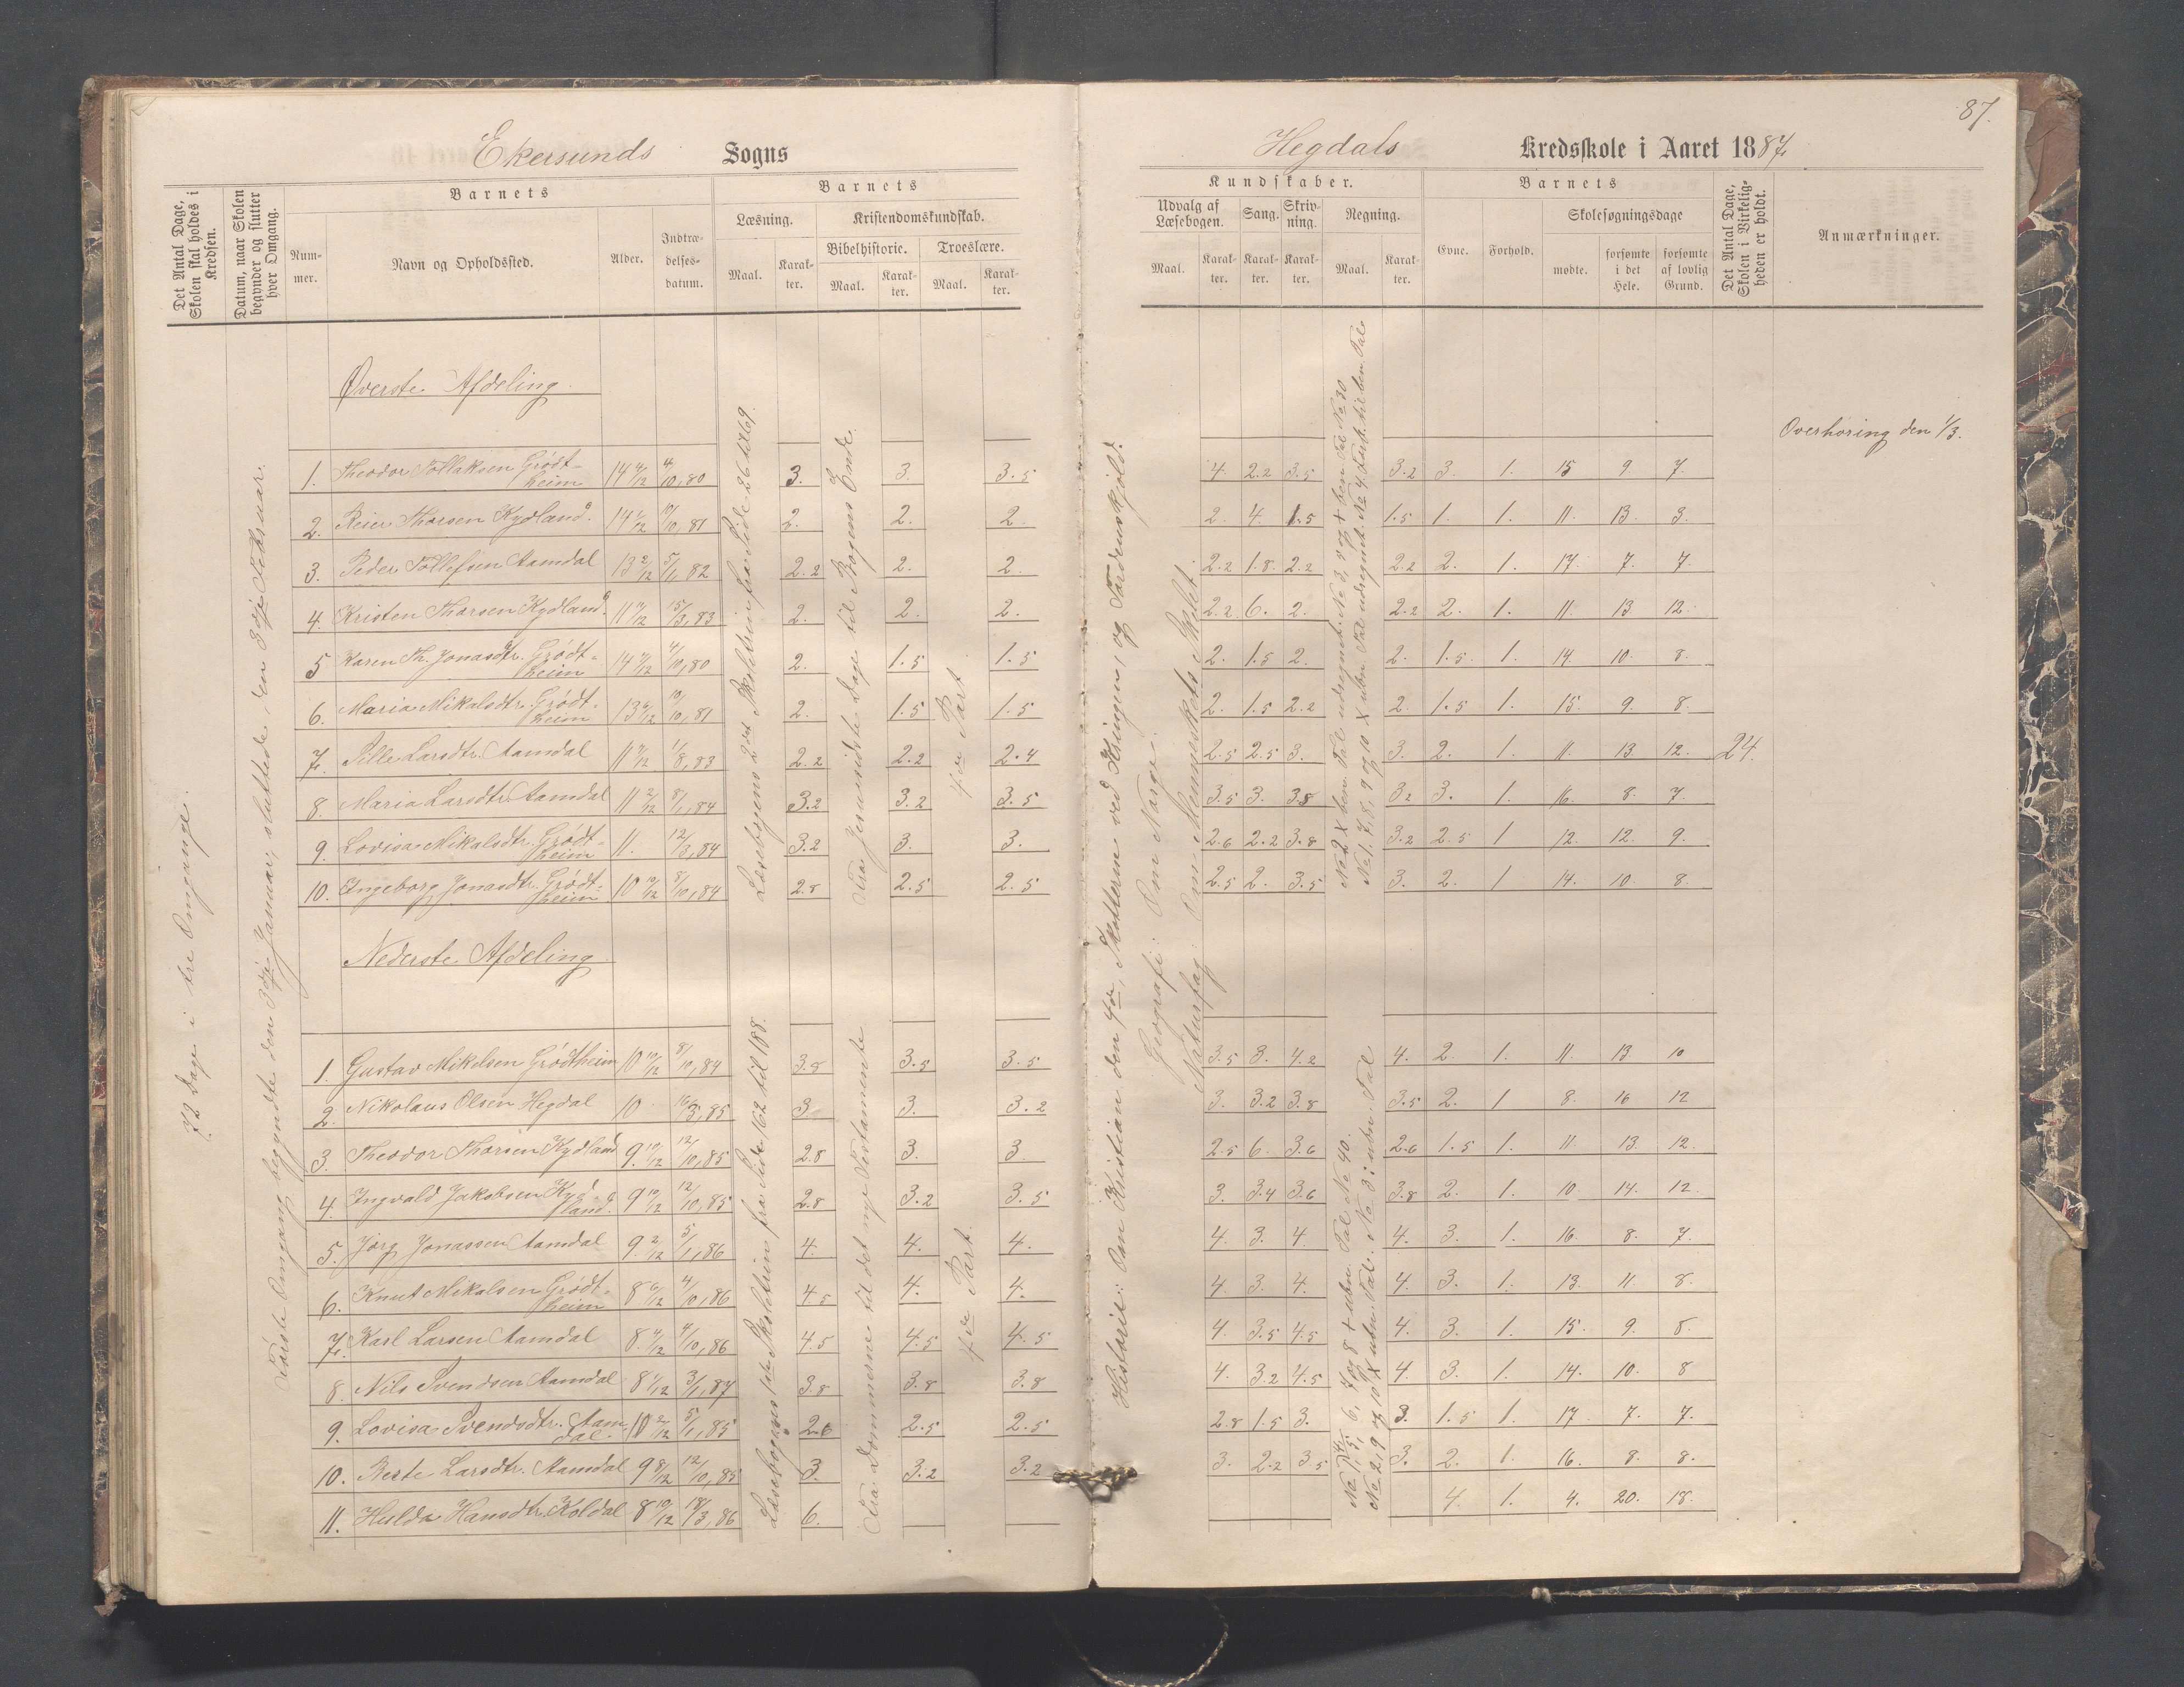 87.
Ekersunds Sogns
Hegdals Kredsskole i Aaret 1887.
Det Antal Dage, Skolen skal holdes i Kredsen.
Datum, naar Skolen begynder og slutter hver Omgang.
Barnets
Nummer.
Navn og Opholdssted.
Alder.
Indtrædelsesdatum.
Barnets
Læsning.
Maal.
Karakter.
Kristendomskundskab.
Bibelhistorie.
Maal.
Karakter.
Troeslære.
Maal.
Karakter.
Kundskaber.
Udvalg af Læsebogen.
Maal.
Karakter.
Sang.
Karakter.
Skrivning.
Karakter.
Regning.
Maal.
Karakter.
Barnets
Evne.
Forhold.
Skolesøgningsdage
mødte.
forsømte i det Hele.
forsømte af lovlig Grund.
Det Antal Dage, Skolen i Virkeligheden er holdt.
Anmærkninger.
72 Dage i tre Omgange.
Første Omgang begyndte den 3die Januar, sluttede den 3die Februar.
Øverste Afdeling.
Læsebogens 2det Skoletrin fra Side 26 til 69.
Fra Jesu sidste Dage til Bogens Ende.
4de Part
Historie: Om Kristian den 4de, Skotterne ved Kringen, og Tordenskjold.
Geografi: Om Norge.
Naturfag: Om Menneskets Skelet.
Overhøring den 1/3.
1. Theodor Tollaksen Grødtheim 14 4/12 4/10,80 3. 3. 3.5 4. 2.2 3.5 3.2 3. 1. 15 9 7.
2. Reier Thorsen Kydland. 14 1/12 10/10,81 2. 2. 2. 2. 4. 1.5 1.5 1. 1. 11. 13. 3.
3. Peder Tollefsen Aamdal 13 2/12 5/1,82 2.2 2. 2. 2.2 1.8 2.2 2.2 2. 1. 17. 7. 7.
4. Kristen Thorsen Kydland. 11 11/12 15/3,83 2. 2. 2. 2.2 6. 2. 2.2 2. 1. 11. 13 12.
5 Karen Th. Jonasdtr. Grødtheim 14 4/12 4/10,80 2. 1.5 1.5 2. 1.5 2. 2. 1.5 1. 14. 10. 8.
6. Maria Mikalsdtr. Grødtheim 13 4/12 10/10,81 2. 1.5 1.5 2. 1.5 2.2 2. 1.5 1. 15. 9. 8.
7. Sille Larsdtr. Aamdal 11 9/12 1/8,83 2.2 2.2 2.4 2.5 2.5 3. 3. 2. 1. 11. 13 12. 24.
8. Maria Larsdtr. Aamdal 11 2/12 8/1,84 3.2 3.2 3.5 3.5 3. 3.8 3.2 3. 1. 16. 8. 7.
9. Lovisa Mikalsdtr. Grødtheim 11. 12/3,84 3.2 3. 3. 2.6 2.2 3.8 3.2 2.5 1 12. 12. 9.
10. Ingeborg Jonasdtr. Grødtheim 10 10/12 8/10,84 2.8 2.5 2.5 2.5 2. 3.5 3. 2. 1 14. 10. 8.
Nederste Afdeling
Læsebogens 1ste Skoletrin fra Side 162 til 188.
Fra Dommerne til det nye Testamente
4de Part.
1. Gustav Mikalsen Grødtheim 10 10/12 8/10,84 3.8 3.5 3.5 3.5 3. 4.2 4. 2. 1. 11. 13 10
2. Nikolaus Olsen Hegdal 10 16/3,85 3 3. 3.2 3. 3.2 3.8 3.5 2. 1 8. 16 12
3. Theodor Thorsen Kydland 9. 10/12 12/10,85 2.8 3. 3. 2.5 6. 3.6 2.6 1.5 1. 11. 13. 12.
4. Ingvald Jakobsen Kydland. 9 10/12 12/10,85 2.8 3.2 3.5 3. 3.4 3.6 3.8 2. 1. 10. 14. 12.
5. Jørg Jonassen Aamdal 9. 2/12 5/1,86 4. 4. 4. 4. 3. 4. 4. 3. 1. 16. 8. 7.
6. Knut Mikalsen Grødtheim 8 6/12 4/10,86 4.5 4. 4. 4. 3. 4. 4. 3. 1. 13. 11 8.
7. Karl Larsen Aamdal 8. 4/12 4/10,86 4.5 4.5 4.5 4. 3.5 4.5 4. 3. 1. 15. 9. 8.
8. Nils Svendsen Aamdal 8 1/12 3/1,87 3.8 3.8 3.8 4. 3.2 4.5 4. 3. 1. 14. 10. 8
9. Lovisa Svendsdtr. Aamdal. 10 2/12 5/1,85 2.6 2.5 2.5 2.8 1.5 3. 3. 1.5 1. 17. 7. 7.
10. Berte Larsdtr. Aamdal 9 8/12 12/10,85 3. 3.2 3.2 3. 2.2 3.5 3. 2. 1. 16. 8. 8.
11. Hulda Hansdtr. Koldal 8 10/12 18/3,86 6. 4. 1. 4. 20. 18.